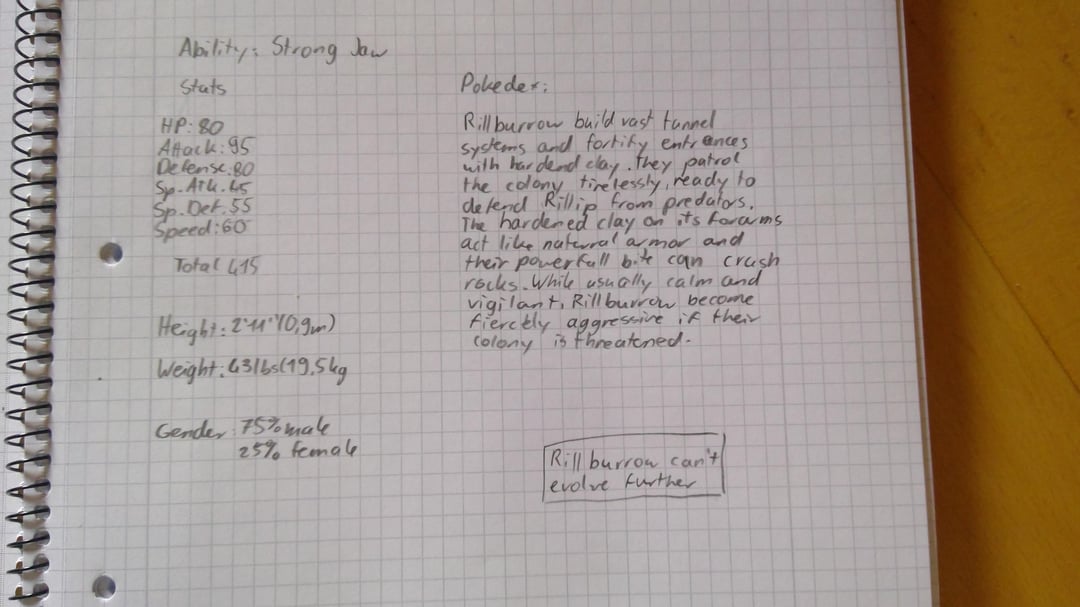 Ability: Strong Jaw
Stats
HP: 80
Attack: 95
Defense: 80
Sp. Atk. 45
Sp. Def. 55
Speed: 60
Total 415
Height: 2'11" (0,9m)
Weight: 43lbs (19,5kg
Gender: 75% male
25% female
Pokedex:
Rillburrow build vast tunnel
systems and fortify entrances
with hardend clay. They patrol
the colony tirelessly, ready to
defend Rillip from predators.
The hardened clay on its forarms
act like natural armor and
their powerfull bite can crush
rocks. While usually calm and
vigilant, Rillburrow become
fiercely aggressive if their
colony is threatened.
Rillburrow can't
evolve further